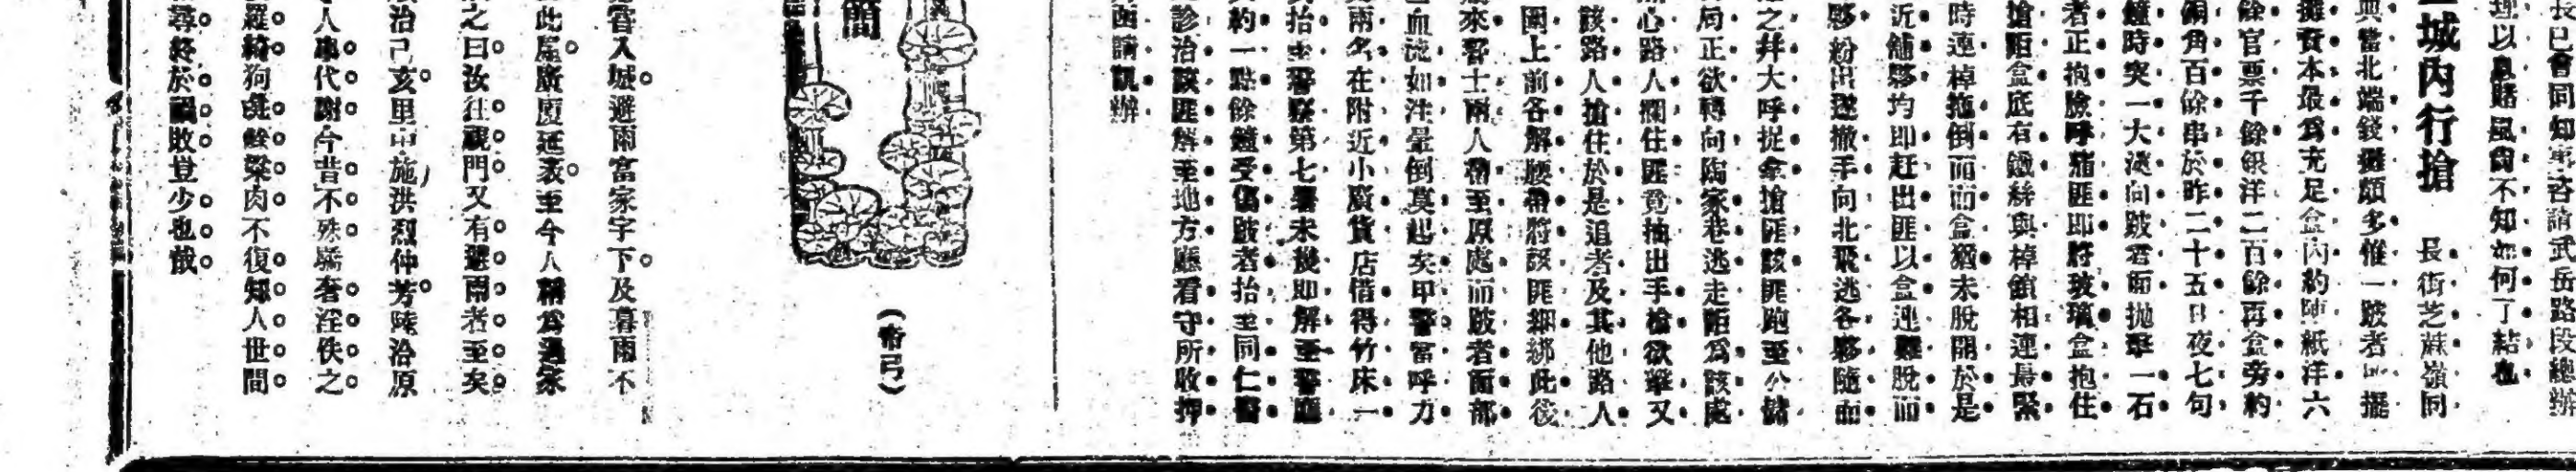 長已會同知事咨請武岳路段總辦
理以息賭風尚不知如何了結也
城內行搶　長街芝蔴嶺同
興當北端錢攤頗多惟一跛者擺
攤資本最爲充足盒內約陳紙洋六
餘官票千餘銀洋二百餘再盒旁約
銅角百餘串於昨二十五日夜七句
鐘時突一大漢向跛者面抛擊一石
者正抱臉呼痛匪即將玻璃盒抱住
搶距盒底有鐵絲與棹錧相連最緊
時連棹拖倒而面盒猶未脫開於是
近舖夥均即赶出匪以盒迅難脫而
夥紛出遂撤手向北飛逃各夥隨而
之幷大呼捉拿搶匪該匪跑至公儲
局正欲轉向陶家巷逃走距爲該處
心路人攔住匪竟抽出手槍欲擊又
該路人搶住於是追者及其他路人
圍上前各解腰帶將該匪綑綁此後
來警士兩人帶至原處而跛者面部
血流如注暈倒莫起矣甲警當呼力
兩名在附近小廣貨店借得竹床一
抬至警察第七署未幾即解至警廳
約一點餘鐘受傷跛者抬至同仁醫
診治該匪解至地方廳看守所收押
函請訊辦
簡
（帝弓）
嘗入城避雨富家宇下及暮雨不
此屋廣廈延袤至今人稱爲過家
之曰汝往視門又有避雨者至矣
治己亥里中施洪烈仲芳陸洽原
人事代謝今昔不殊驕奢淫佚之
羅綺狗彘餘粱肉不復知人世間
尋終於禍敗豈少也哉